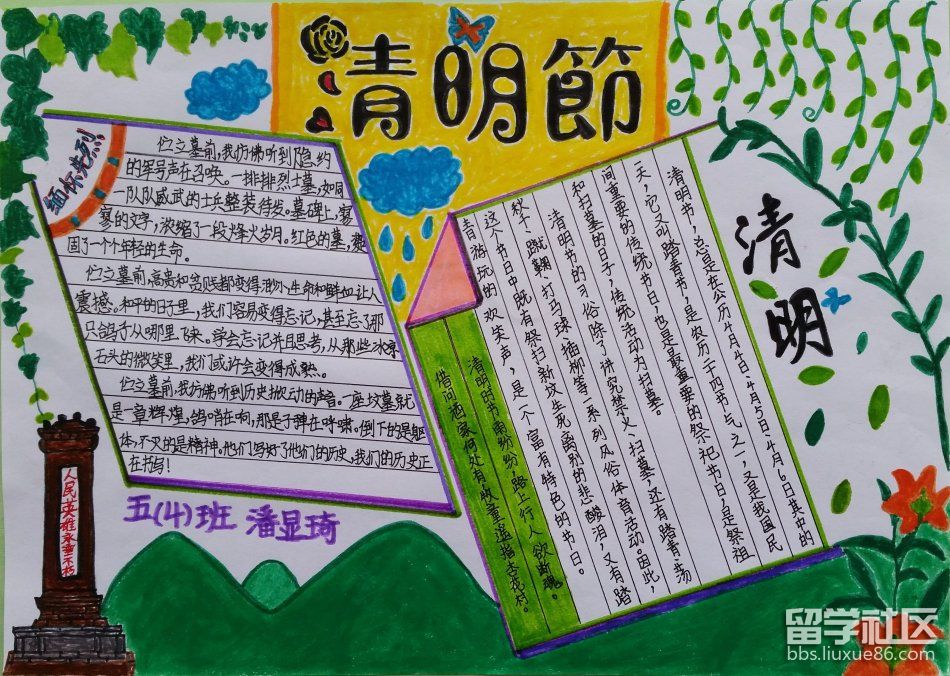 清明節
缅怀先烈
伫立墓前,我仿佛听到隐约
的军号声在召唤。一排排烈士墓,如同
一队队威武的士兵整装待发。墓碑上,寥
寥的文字,浓缩了一段烽火岁月。红色的墓,凝
固了一个个年轻的生命。
伫立墓前,高贵和贫贱都变得渺小,生命和鲜血让人
震撼。和平的日子里,我们容易变得忘记,甚至忘了那
只鸽子从哪里飞来。学会忘记并且思考,从那些冰凉
石头的微笑里,我们或许会变得成熟。
伫立墓前,我仿佛听到历史掀动的声音。一座坟墓就
是一章辉煌,鸽哨在响,那是子弹在呼啸。倒下的是躯
体,不灭的是精神。他们写好了他们的历史,我们的历史正
在书写!
五(4)班 潘显琦
人民英雄永垂不朽
清明
清明节,总是在公历4月4日、4月5日、4月6日其中的
一天,它又叫踏青节,是农历二十四节气之一,又是我国民
间重要的传统节日,也是最重要的祭祀节日,是祭祖
和扫墓的日子,传统活动为扫墓。
清明节的习俗除了讲究禁火、扫墓,还有踏青、荡
秋千、蹴鞠、打马球、插柳等一系列风俗体育活动。因此,
这个节日中既有祭扫新坟生死离别的悲酸泪,又有踏
青游玩的欢笑声,是一个富有特色的节日。
清明时节雨纷纷,路上行人欲断魂。
借问酒家何处有,牧童遥指杏花村。
留学社区
bbs.liuxue86.com